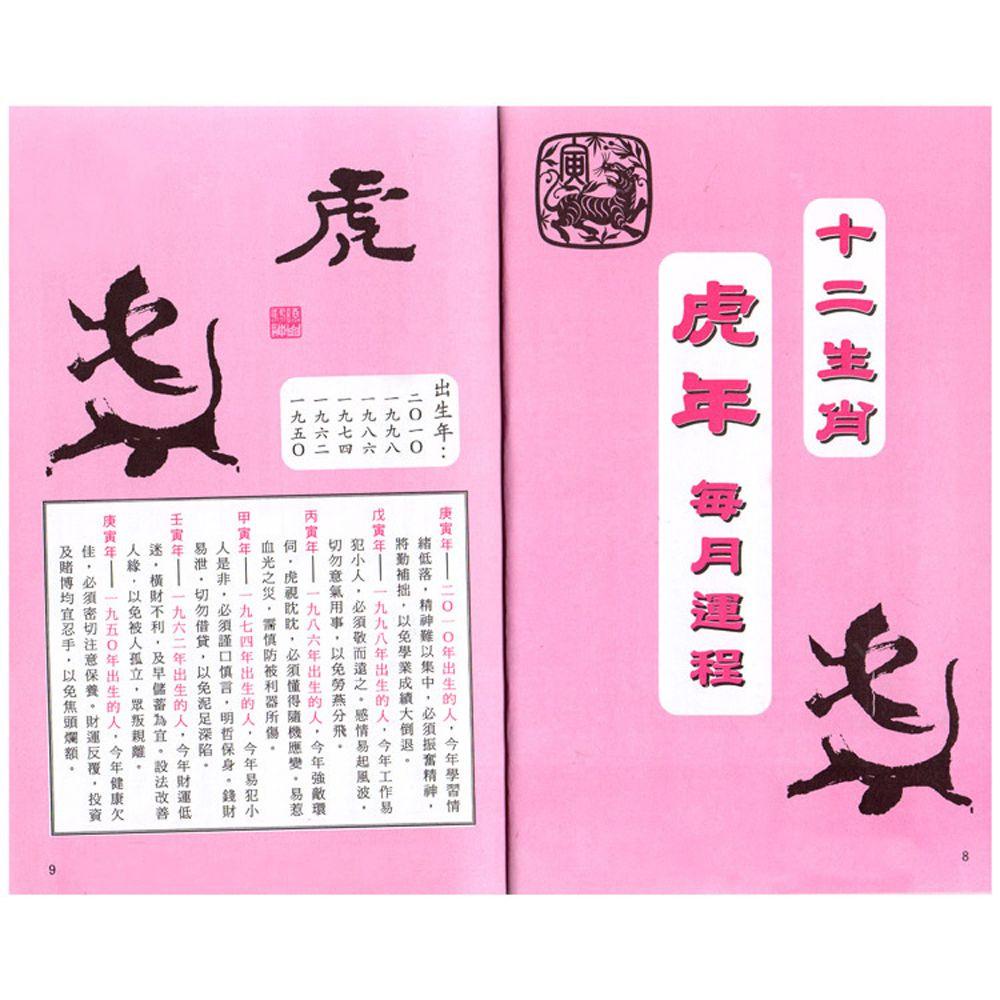 寅
十二生肖
虎年 每月運程
8
虎
出生年：
二〇一〇
一九九八
一九八六
一九七四
一九六二
一九五〇
庚寅年——二〇一〇年出生的人，今年學習情
緒低落，精神難以集中，必須振奮精神，
將勤補拙，以免學業成績大倒退。
戊寅年——一九九八年出生的人，今年工作易
犯小人，必須敬而遠之。感情易起風波，
切勿意氣用事，以免勞燕分飛。
丙寅年——一九八六年出生的人，今年強敵環
伺，虎視眈眈，必須懂得隨機應變。易惹
血光之災，需慎防被利器所傷。
甲寅年——一九七四年出生的人，今年易犯小
人是非，必須謹口慎言，明哲保身。錢財
易泄，切勿借貸，以免泥足深陷。
壬寅年——一九六二年出生的人，今年財運低
迷，橫財不利，及早儲蓄為宜。設法改善
人緣，以免被人孤立，眾叛親離。
庚寅年——一九五〇年出生的人，今年健康欠
佳，必須密切注意保養。財運反覆，投資
及賭博均宜忍手，以免焦頭爛額。
9